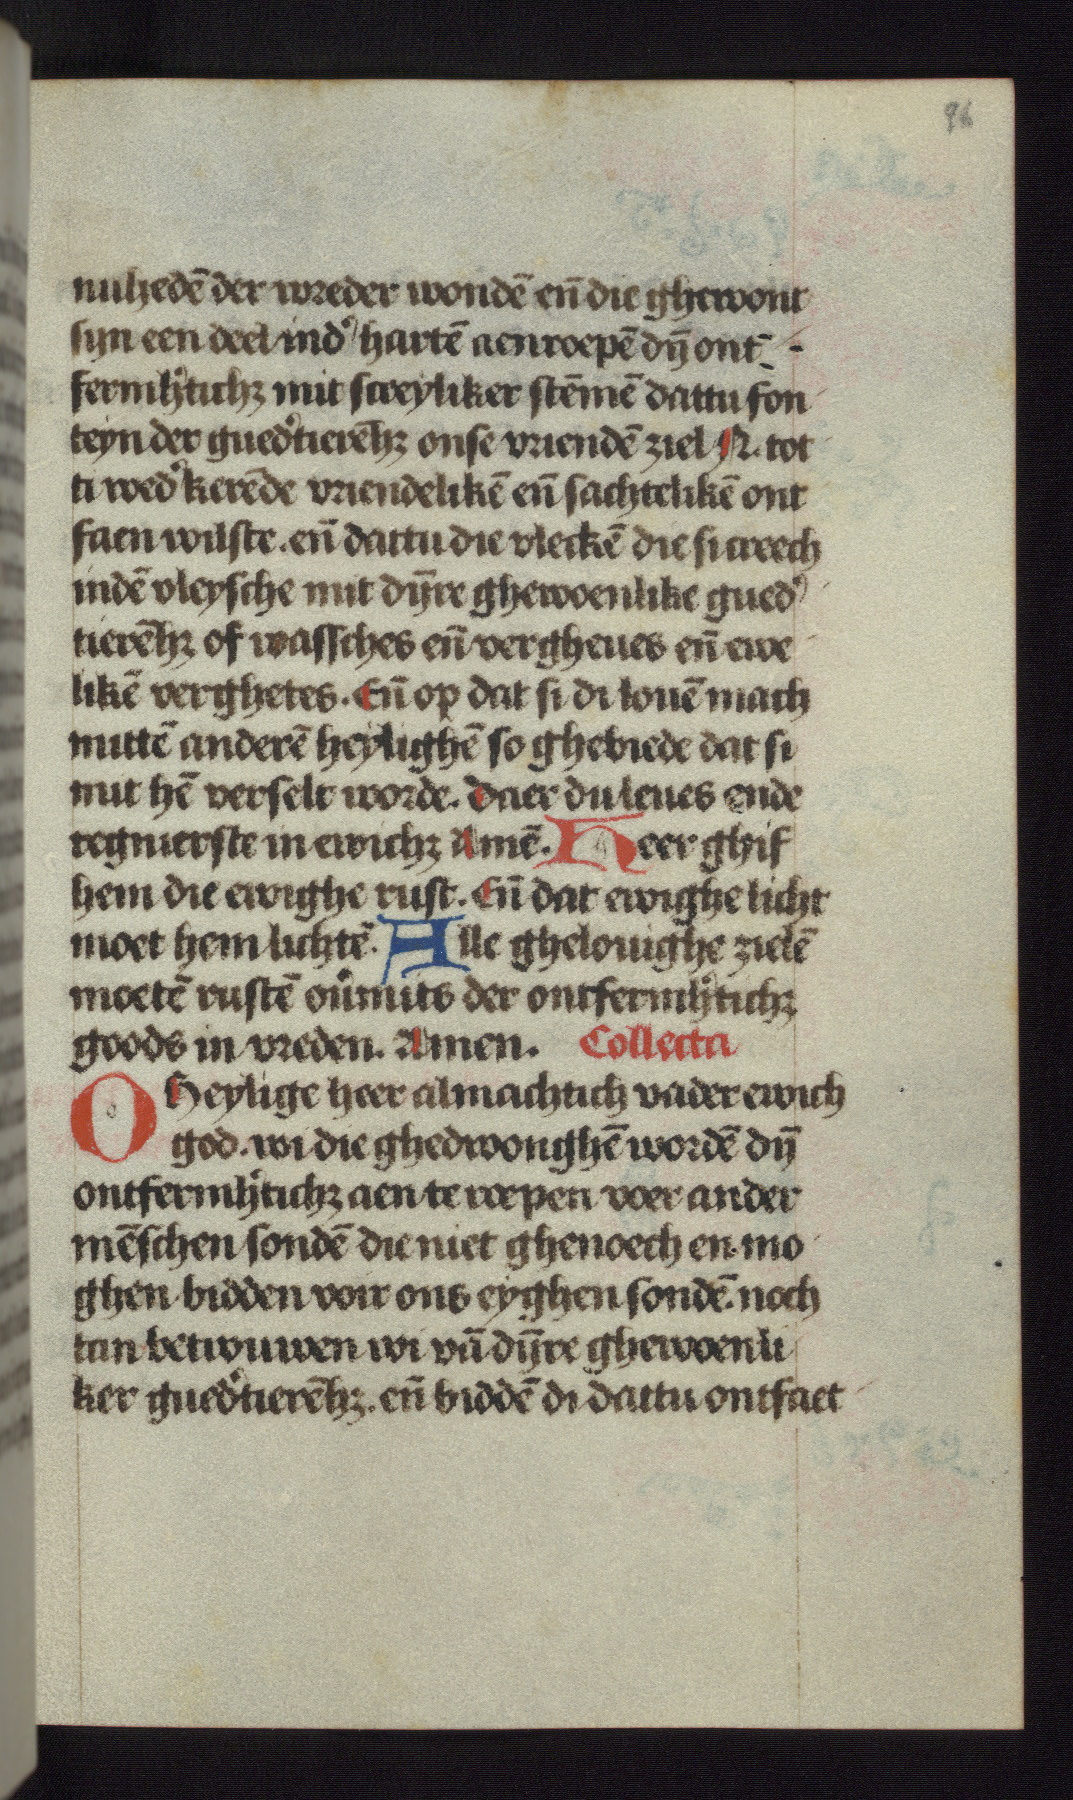 96
nuhedē der wreder wondē en̄ die ghewont
sijn een deel ind' hartē aenroepē dȳ ont-
fermh'tich₃ mit screyliker stēmē dattu fon
teyn der gued'tierēh₃ onse vriendē ziel N. tot
ti wed' kerēde vriendelikē en̄ sachtelikē ont
faen wilste. en̄ dattu die vleckē die si creech
indē vleysche mit dȳre ghewoenlike gued'
tierēh₃ of wassches en̄ vergheues en̄ ewe
likē verghetes. En̄ op dat si di louē mach
mittē anderē heylighē so ghebiede dat si
mit hē verselt worde. Daer du leues ende
regnierste in ewich₃ Amē. Heer ghif
hem die ewighe rust. En̄ dat ewighe licht
moet hem lichtē. Alle ghelouighe zielē
moetē rustē ou'mits der ontfermh'tich₃
goods in vreden. Amen. Collecta
O Heylige heer almachtich vader ewich
god. wi die ghedwonghē wordē dȳ
ontfermh'tich₃ aen te roepen voer ander
mēschen sondē die niet ghenoech en mo
ghen bidden voir ons eyghen sondē. noch
tan betrouwen wi vā dȳre ghewoenli
ker gued'tierēh₃. en̄ biddē di dattu ontfaet